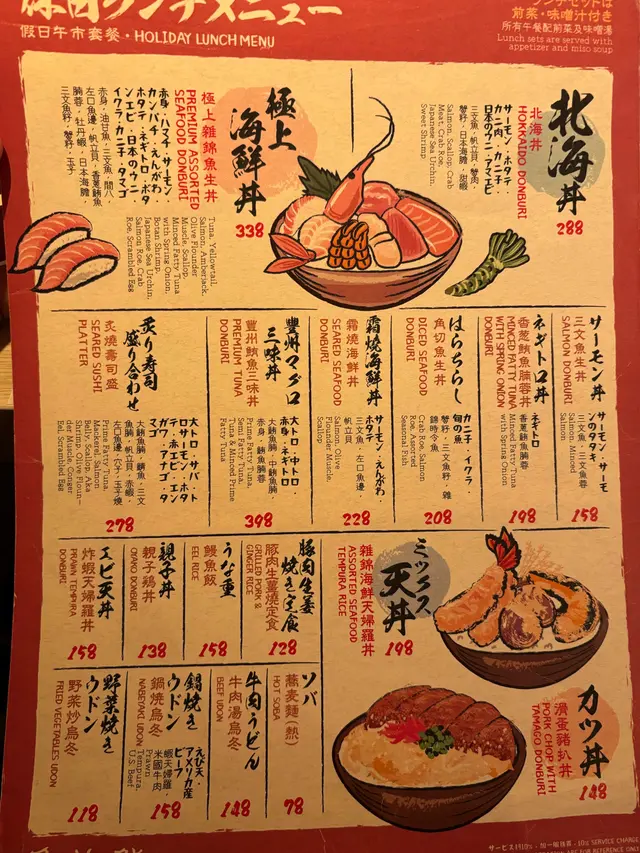 ランチメニュー
假日午市套餐・HOLIDAY LUNCH MENU
ランチセットは
前菜・味噌汁付き
所有午餐配前菜及味噌湯
Lunch sets are served with
appetizer and miso soup
北海丼
北海丼
HOKKAIDO DONBURI
サーモン・ホタテ・
カニ肉・カニ子・
日本のウニ・アマエビ
三文魚・帆立貝・蟹肉
蟹籽・日本海膽・甜蝦
Salmon, Scallop, Crab
Meat, Crab Roe,
Japanese Sea Urchin,
Sweet Shrimp
288
極上
海鮮丼
極上雜錦魚生丼
PREMIUM ASSORTED
SEAFOOD DONBURI
赤身・ハマチ・サーモン・
カンパチ・えんがわ・
ホタテ・ネギトロ・ボタ
ンエビ・日本のウニ・
イクラ・カニ子・タマゴ
赤身・油甘魚・三文魚・間八
左口魚邊・帆立貝・香蔥鮪魚
腩蓉・牡丹蝦・日本海膽
三文魚籽・蟹籽・玉子
Tuna, Yellowtail,
Salmon, Amberjack,
Olive Flounder
Muscle, Scallop,
Minced Fatty Tuna
with Spring Onion,
Botan Shrimp,
Japanese Sea Urchin,
Salmon Roe, Crab
Roe, Scrambled Egg
338
サーモン丼
三文魚生丼
SALMON DONBURI
サーモン・サーモ
ンのタタキ
三文魚・三文魚蓉
Salmon, Minced
Salmon
158
ネギトロ丼
香蔥鮪魚腩蓉丼
MINCED FATTY TUNA
WITH SPRING ONION
DONBURI
ネギトロ
香蔥鮪魚腩蓉
Minced Fatty Tuna
with Spring Onion
198
ばらちらし
角切魚生丼
DICED SEAFOOD
DONBURI
カニ子・イクラ・
旬の魚
蟹籽・三文魚籽・雜
錦時令魚
Crab Roe, Salmon
Roe, Assorted
Seasonal Fish
208
霜焼海鮮丼
霜燒海鮮丼
SEARED SEAFOOD
DONBURI
サーモン・えんがわ・
ホタテ
三文魚・左口魚邊・
帆立貝
Salmon, Olive
Flounder Muscle,
Scallop
228
豊州マグロ
三味丼
豐州鮪魚三味丼
PREMIUM TUNA
DONBURI
大トロ・中トロ・
赤身・ネギトロ
大鮪魚腩・中鮪魚腩
赤身・鮪魚腩蓉
Prime Fatty Tuna,
Semi Fatty Tuna,
Tuna & Minced Prime
Fatty Tuna
398
炙り寿司
盛り合わせ
炙燒壽司盛
SEARED SUSHI
PLATTER
大トロ・サバ・ト
ロサーモン・ホタ
テ・赤エビ・エン
ガワ・アナゴ・タ
マゴ
大鮪魚腩・鯖魚・三文
魚腩・帆立貝・赤蝦・
左口魚邊・穴子・玉子燒
Prime Fatty Tuna,
Mackerel, Salmon
Belly, Scallop, Aka
Shrimp, Olive Floun-
der Muscle, Conger
Eel, Scrambled Egg
278
ミックス
天丼
雜錦海鮮天婦羅丼
ASSORTED SEAFOOD
TEMPURA RICE
198
豚肉生姜
焼き定食
豚肉生薑燒定食
GRILLED PORK &
GINGER RICE
128
うな重
鰻魚飯
EEL RICE
158
親子丼
親子鶏丼
OYAKO DONBURI
138
エビ天丼
炸蝦天婦羅丼
PRAWN TEMPURA
DONBURI
158
カツ丼
滑蛋豬扒丼
PORK CHOP WITH
TAMAGO DONBURI
148
ソバ
蕎麦麵(熱)
HOT SOBA
78
牛肉うどん
牛肉湯烏冬
BEEF UDON
148
鍋焼き
ウドン
鍋燒烏冬
NABEYAKI UDON
えび天・
アメリカ産
ビーフ
蝦天婦羅・
米國牛肉
Tempura,
Prawn
U.S. Beef
158
野菜焼き
ウドン
野菜炒烏冬
FRIED VEGETABLES UDON
118
サービス料10%・加一服務費・10% SERVICE CHARGE
FOR REFERENCE ONLY